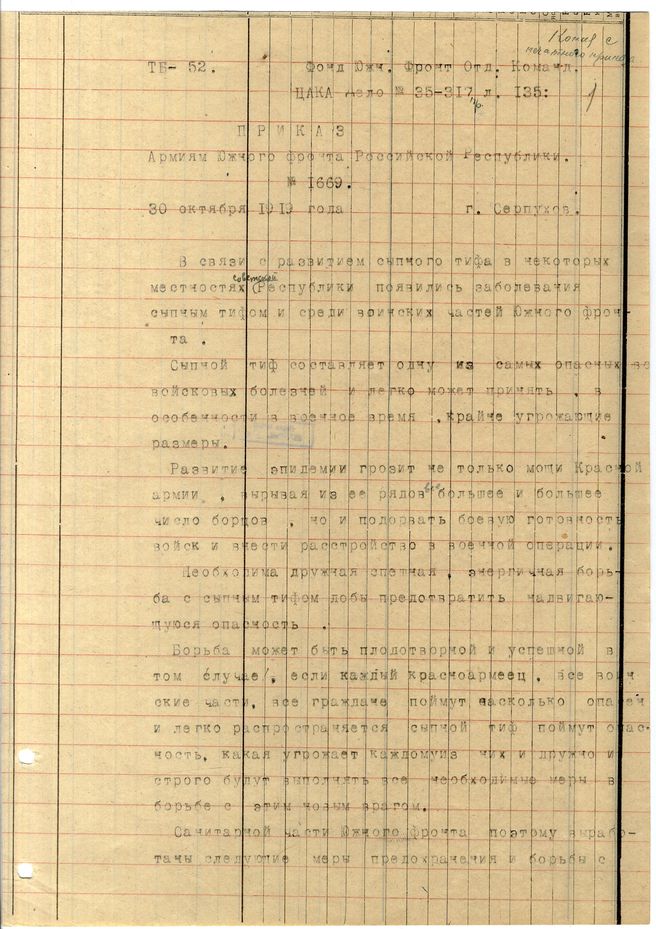 Копия с
печатного приказа
ТБ- 52. Фонд Южн. Фронт Отд. Команд.
ЦАКА дело № 35-317 л. 135:
ПРИКАЗ
Армиям Южного фронта Российской Республики.
№ 1669.
30 октября 1919 года г. Серпухов.
В связи с развитием сыпного тифа в некоторых
советской
местностях Республики появились заболевания
сыпным тифом и среди воинских частей Южного фрон-
та .
Сыпной тиф составляет одну из самых опасных
войсковых болезней и легко может принять , в
особенности в военное время , крайне угрожающие
размеры.
Развитие эпидемии грозит не только мощи Красной
армии , вырывая из ее рядов все большее и большее
число борцов , но и подорвать боевую готовность
войск и внести расстройство в военной операции.
Необходима дружная спешная , энергичная борь-
ба с сыпным тифом дабы предотвратить надвигаю-
щуюся опасность .
Борьба может быть плодотворной и успешной в
том случае, если каждый красноармеец, все воин
ские части, все граждане поймут насколько опасен
и легко распространяется сыпной тиф поймут опас-
ность, какая угрожает каждомуиз них и дружно и
строго будут выполнять все необходимые меры в
борьбе с этим новым врагом.
Санитарной части Южного фронта поэтому вырабо-
таны следующие меры предохранения и борьбы с